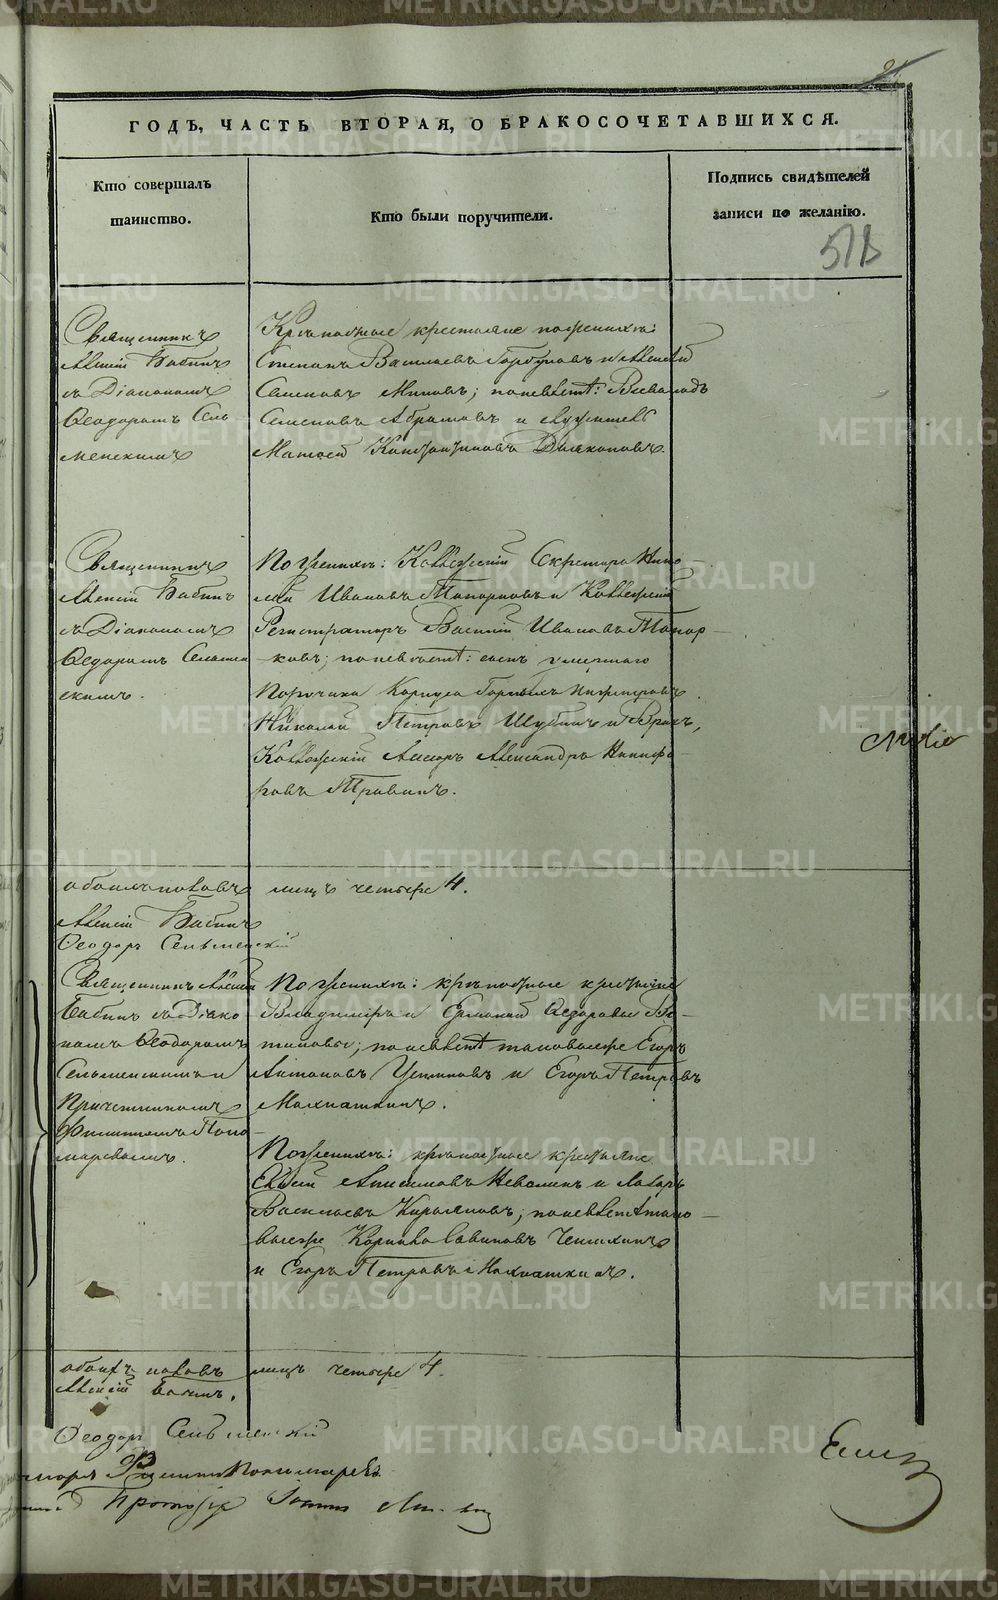 ГОДЪ, ЧАСТЬ ВТОРАЯ, О БРАКОСОЧЕТАВШИХСЯ.
Кто совершалъ
таинство.
Кто были поручители.
Подпись свидѣтелей
записи по желанію.
Священникъ
Алексій Бабинъ
съ Діакономъ
Ѳеодоромъ Сель
менскимъ
Крѣпостные крестьяне по женихѣ:
Степанъ Васильевъ Горбуновъ и Алексѣй
Семеновъ; по невѣстѣ: Всеволодъ
Семеновъ Абрамовъ и служитель
Матвѣй Константиновъ
Священникъ
Алексій Бабинъ
съ Діакономъ
Ѳедоромъ Сельмен
скимъ.
По женихѣ: Коллежскій Секретарь Нико
лай Ивановъ Топорковъ и Коллежскій
Регистраторъ Василій Ивановъ Топор
ковъ; по невѣстѣ: сынъ умершаго
Порочика Корпуса Горныхъ Инженеровъ
Николай Петровъ Шубинъ и Врачъ,
Коллежскій Ассесоръ Александръ Никифо
ровъ Травинъ.
обоихъ половъ лицъ четыре 4.
Алексій Бабинъ
Ѳеодоръ Сельменскій
Священникъ Алексій
Бабинъ съ Діако
номъ Ѳеодоромъ
Сельменскимъ и
Причетникомъ
Филиппомъ Поно
маревымъ.
По женихѣ: крѣпостные крестьяне
Владиміръ и Ермолай Ѳедоровы
по невѣстѣ таковые же Егоръ
Антоновъ Устиновъ и Егоръ Петровъ
Махнаткинъ.
По женихѣ: крѣпостные крестьяне
Анисимовъ Неволинъ и Лазарь
Васильевъ по невѣстѣ тако
вые же Корнило Савиновъ
и Егоръ Петровъ Махнаткинъ.
обоихъ половъ лицъ четыре 4.
Алексій Бабинъ.
Ѳеодоръ Сельменскій
Филиппъ Пономаревъ
Протоіерей Іоаннъ
METRIKI.GASO-URAL.RU